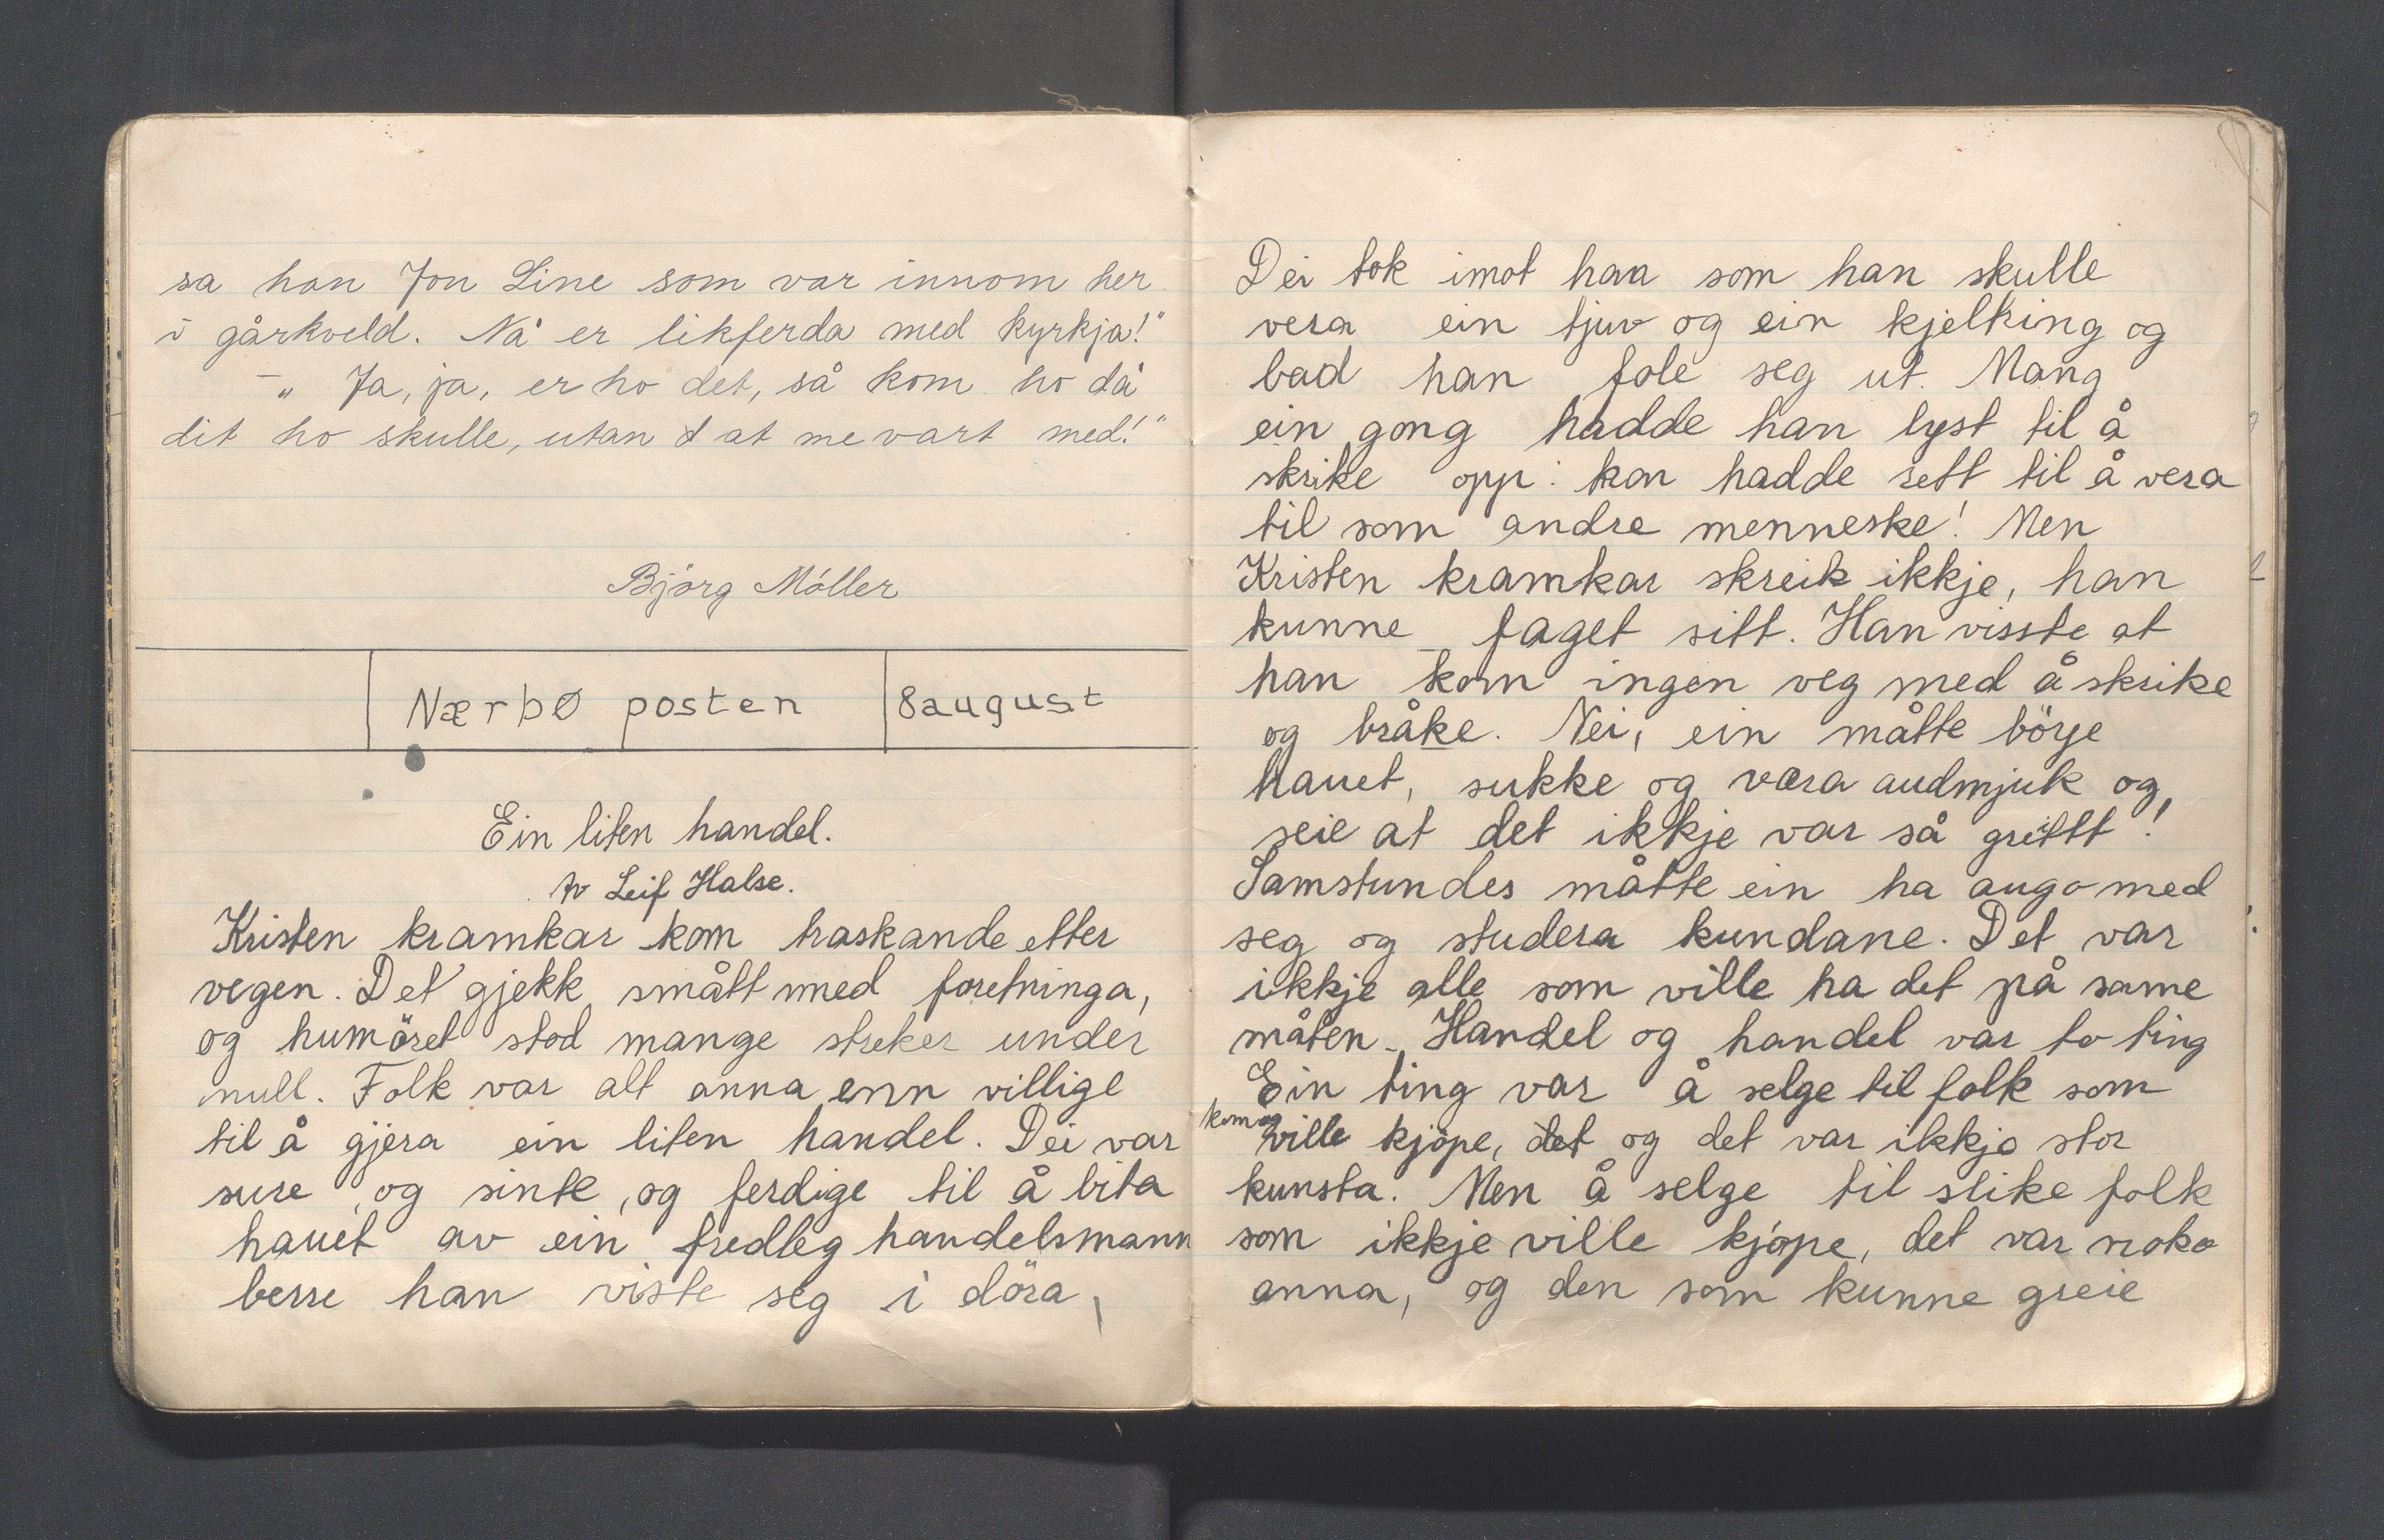 sa han Jon Line som var innom her
i gårkveld. Nå er likferda med kyrkja!"
–" Ja, ja, er ho det, så kom ho då
dit ho skulle, utan at me vart med!"
Björg Möller
Nærbø posten
8 august
Ein liten handel.
Av Leif Halse.
Kristen kramkar kom traskande etter
vegen. Det gjekk smått med foretninga,
og humöret stod mange streker under
null. Folk var alt anna enn villige
til å gjera ein liten handel. Dei var
sure og sinte, og ferdige til å bita
hauet av ein fredleg handelsmann
berre han viste seg i döra,
Dei tok imot han som han skulle
vera ein tjuv og ein kjelking og
bad han fole seg ut. Mang
ein gong hadde han lyst til å
skrike opp: han hadde rett til å vera
til som andre menneske! Men
Kristen kramkar skreik ikkje, han
kunne faget sitt. Han visste at
han kom ingen veg med å skrike
og bråke. Nei, ein måtte börje
hauet, sukke og væra audmjuk og
seie at det ikkje var så greitt!
Samstundes måtte ein ha augo med
seg og studera kundane. Det var
ikkje alle som ville ha det på same
måten. Handel og handel var to ting
Ein ting var å selge til folk som
kom og ville kjöpe, det og det var ikkje stor
kunsta. Men å selge til slike folk
som ikkje ville kjöpe, det var noko
anna, og den som kunne greie